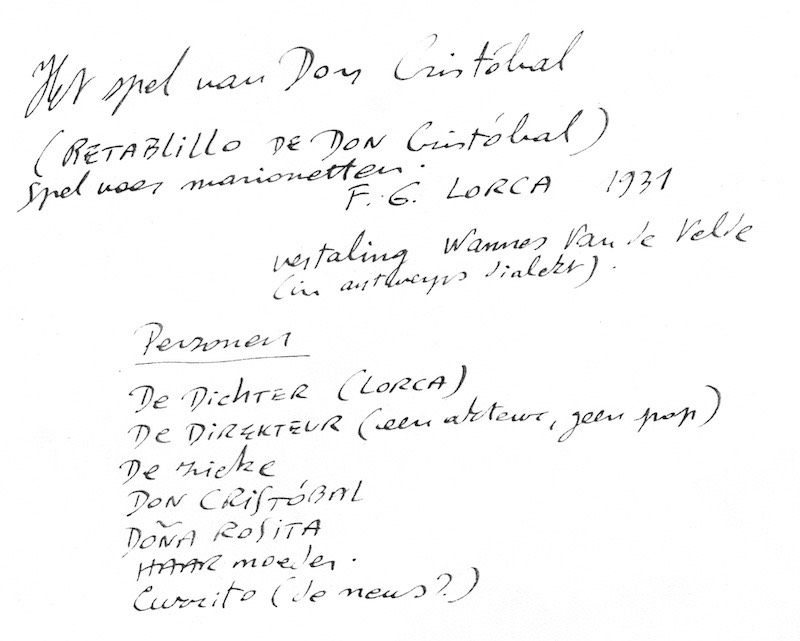 Het spel van Don Cristóbal
(RETABLILLO DE DON Cristóbal)
spel voor marionetten.
F. G. LORCA 1931
vertaling Wannes Van de Velde
(in antwerps dialekt).
Personen
De DICHTER (LORCA)
De DIREKTEUR (een akteur, geen pop)
De zieke
DON CRISTÓBAL
DOÑA ROSITA
HAAR moeder.
Currito (de neus?)